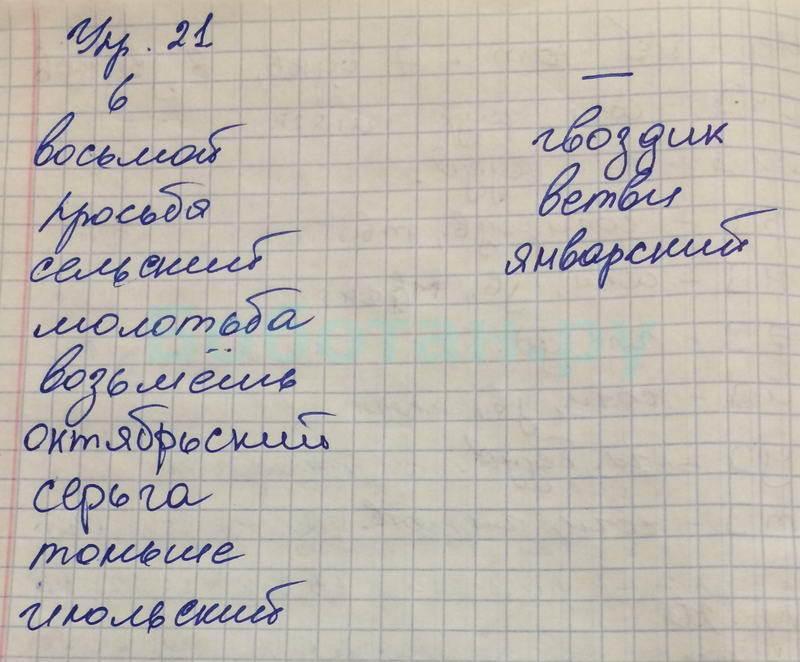 Упр. 21
ь
восьмой
просьба
сельский
молотьба
возьмёшь
октябрьский
серьга
тоньше
июльский
—
гвоздик
ветви
январский